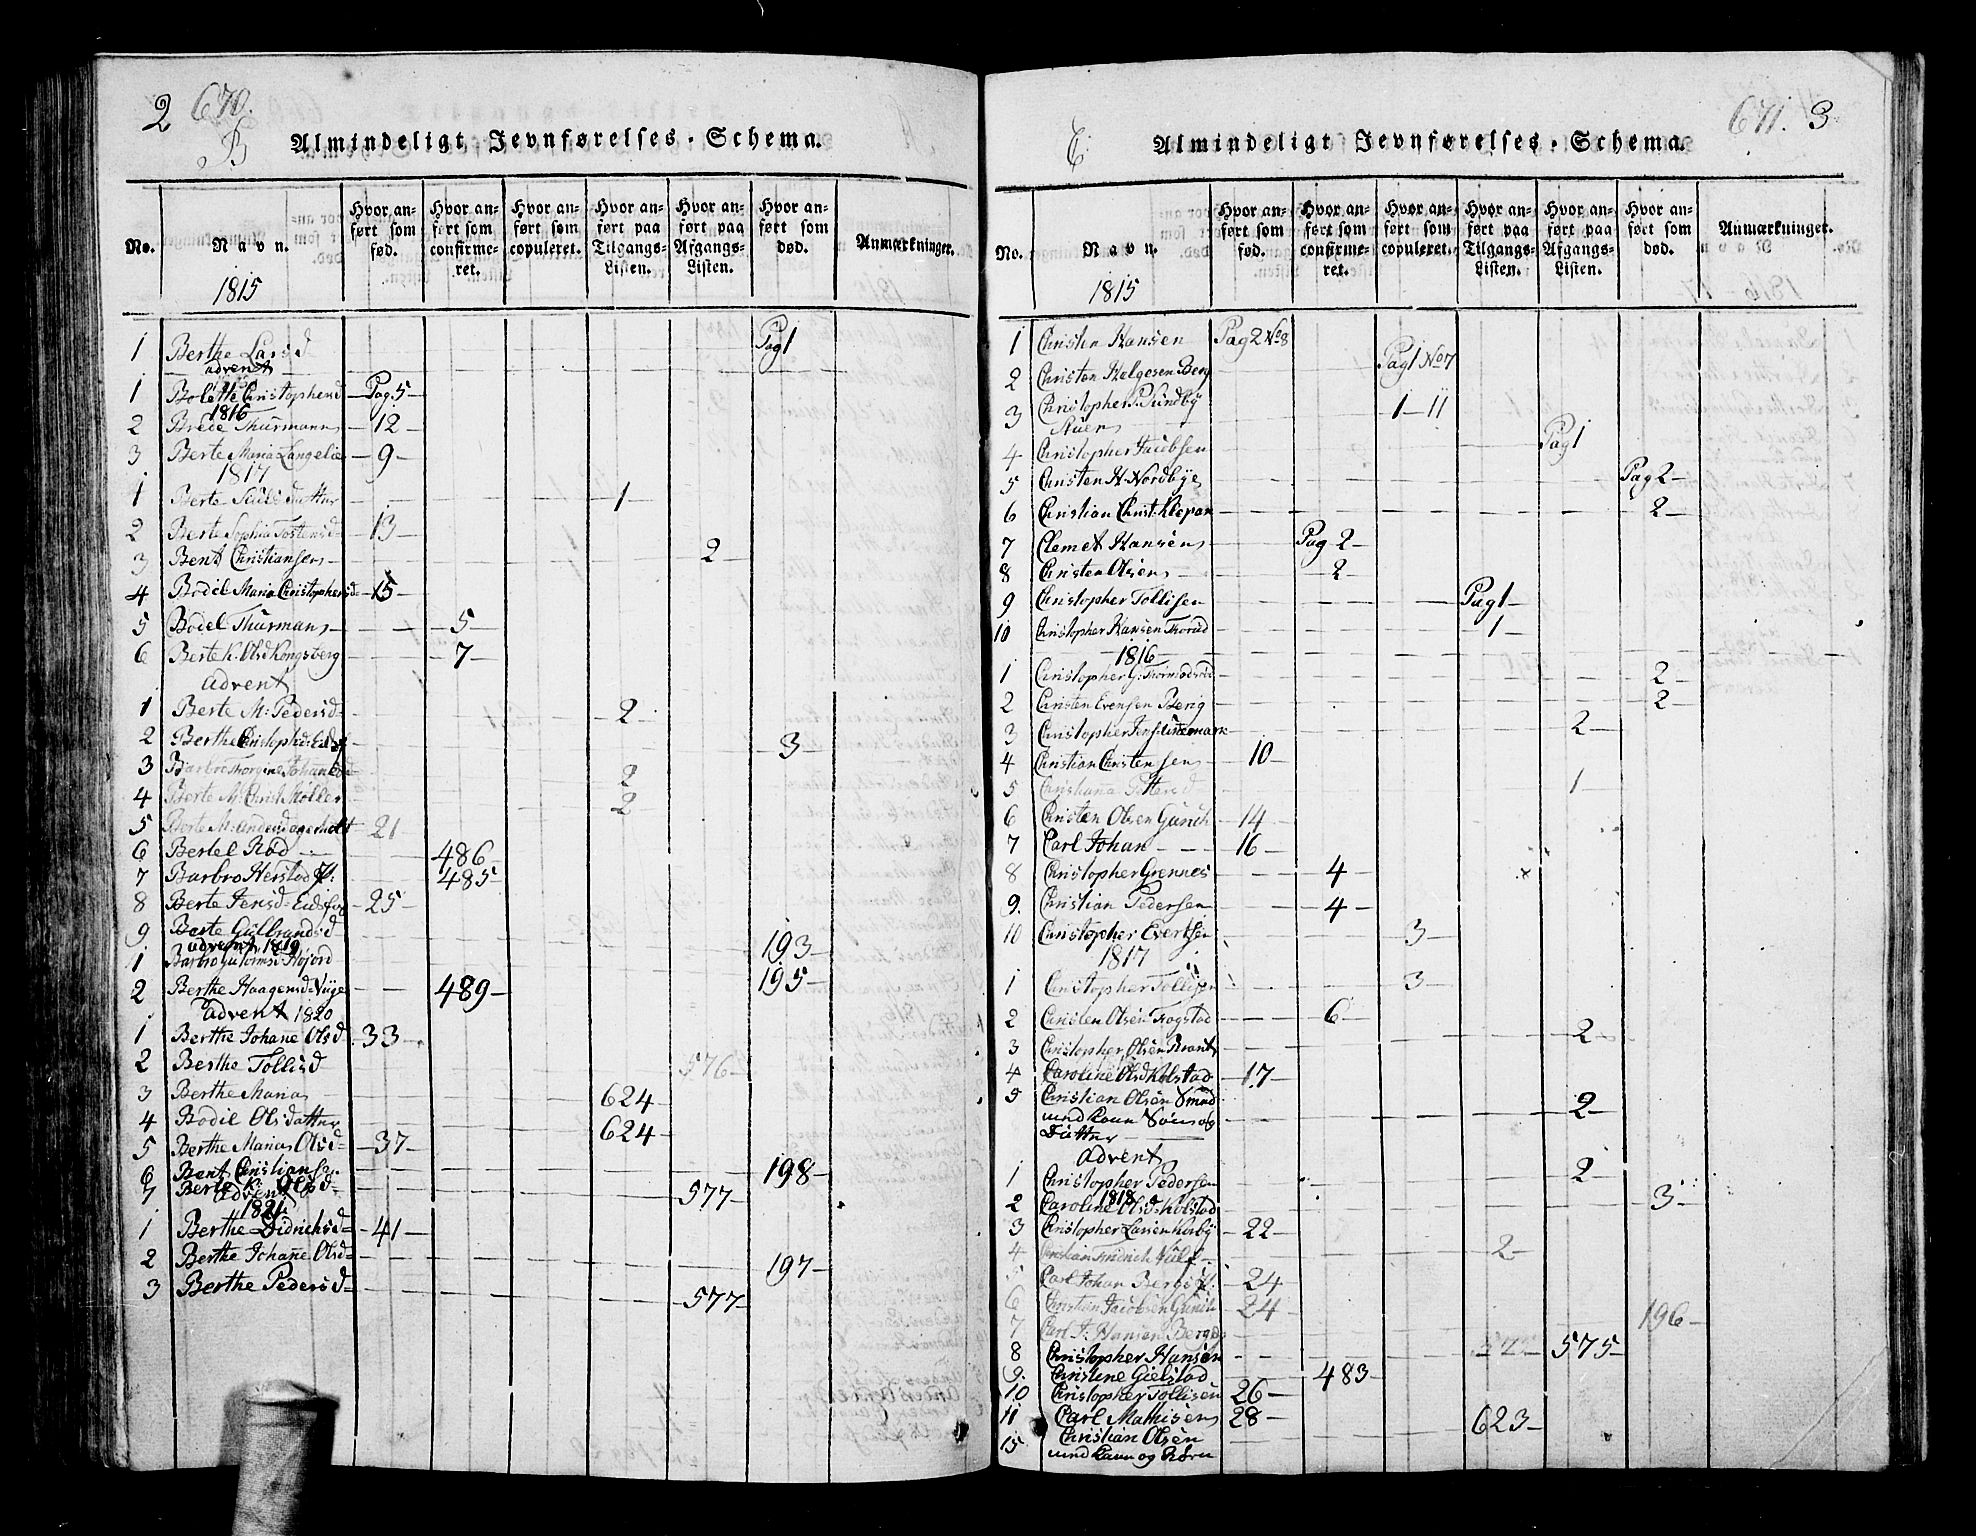 2 670.
B Almindeligt Jevnførelses-Schema.
No. Navn. Hvor anført som fød. Hvor anført som confirmeret. Hvor anført som copuleret. Hvor anført paa Tilgangs-Listen. Hvor anført paa Afgangs-Listen. Hvor anført som død. Anmærkninger.
1815
1 Berthe Larsd Pag 1
advent
1 Bolette Christophersd Pag. 5
1816
2 Brede Thurmann 12
3 Berte Maria Langelie 9
1817
1 Berte 1
2 Berte Sophia Tostensd 13
3 Bent Christiansen 2
4 Bodil Maria Christophersd 15
5 Bodel Thurmans 5
6 Berte K. Olsd Kongsberg 7
advent
1 Berte M: Pedersd 2
2 Berthe 3
3 Barbro 2
4 Berte M: Christ: Møller 2
5 Berte M: 21
6 Bertel Rød 486
7 Barbro Herstad 485
8 Berte Jensd 25
9 Berte Gulbrandsd 193
advent 1819
1 Barbro 195
2 Berthe Haagensd 489
Advent 1820
1 Berthe Johane Olsd 33
2 Berthe Tollisd 576
3 Berthe Maria 624
4 Bodil Olsdatter 624
5 Berthe Maria Olsd 37
6 Bent Christians 198
7 Berte K: Olsd 577
Advent
1821
1 Berthe Didrichsd 41
2 Berthe Johane Olsd 197
3 Berthe Pedersd 577
671. 3
C. Almindeligt Jevnførelses-Schema.
No. Navn. Hvor anført som fød. Hvor anført som confirmeret. Hvor anført som copuleret. Hvor anført paa Tilgangs-Listen. Hvor anført paa Afgangs-Listen. Hvor anført som død. Anmærkninger.
1815
1 Christen Hansen Pag 2 No 8
2 Christen Helgesen Berg Pag 1 No 7
3 Christopher P. Sundby 1 - 11
4 Christopher Jacobsen Pag 1
5 Christen H. Nordbye Pag 2
6 Christian Christ. 2
7 Clemet Hansen Pag 2
8 Christen Olsen 2
9 Christopher Tollisen Pag 1
10 Christopher Hansen 1
1816
1 Christopher G: 2
2 Christen Evensen Berg 2
3 Christopher 2
4 Christian Christensen 10
5 Christiana 1
6 Christen Olsen 14
7 Carl Johan 16
8 Christopher Grennes 4
9. Christian Pedersen 4
10 Christopher Evertsen 3
1817
1 Christopher Tollisen 3
2 Christen Olsen Frogstad 6
3 Christopher Olsen 2
4 Caroline Olsd Kolstad 17
5 Christian Olsen 2
og
Datter
Advent
1 Christopher Pedersen 2
1818
2 Caroline Olsd Kolstad 3
3 Christopher Larsen 22
4 Christian Fredrich 2
5 Carl Johan 24
6 Christian Jacobsen 24
7 Carl J. Hansen 196
8 Christopher Hansen 575
9. Christine Gielstad 483
10 Christopher Tollisen 26
11 Carl Mathisen 28
15 Christian Olsen 623
og Børn